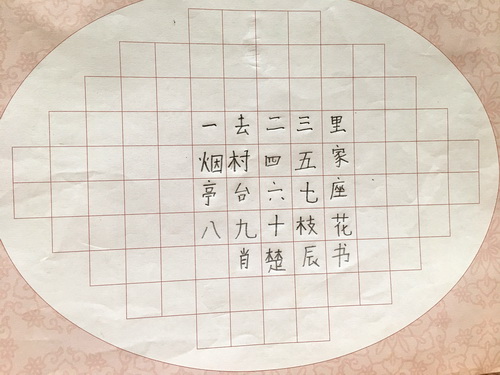 一去二三里
烟村四五家
亭台六七座
八九十枝花
肖楚辰书